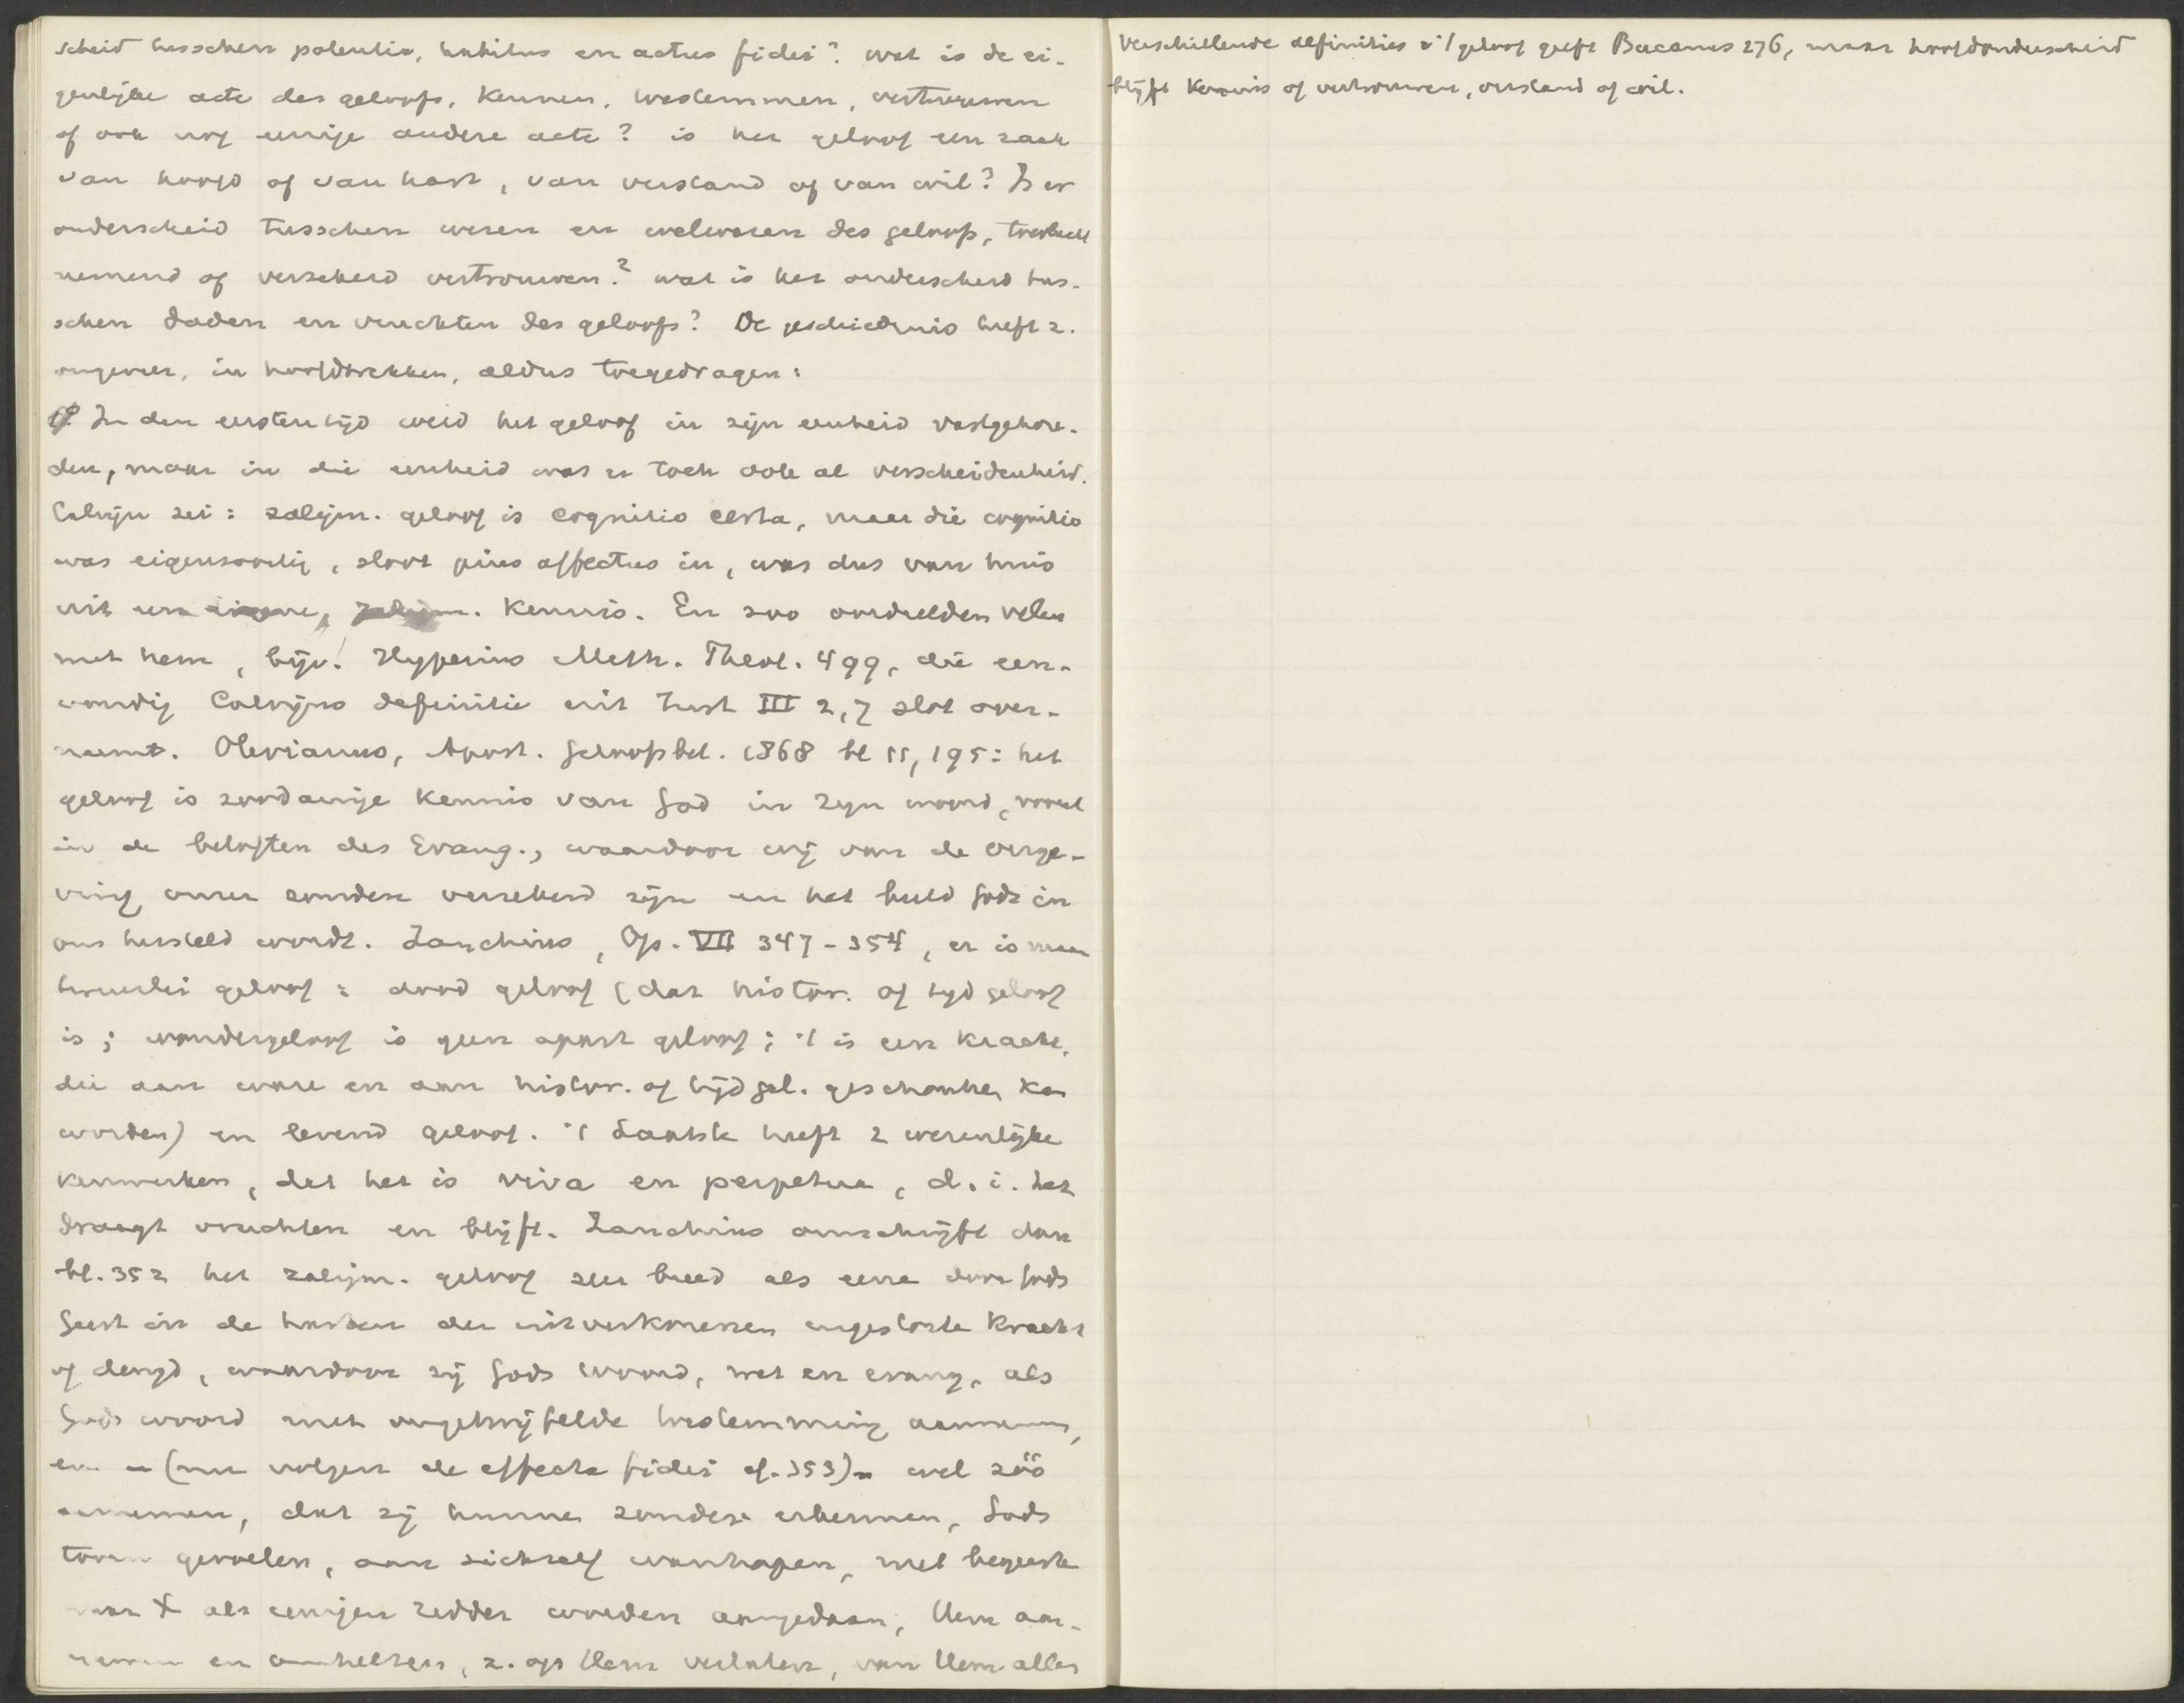 scheid tusschen potentia, habitus en actus fidei? wat is de ei-
genlijke acte des geloofs, kennen, toestemmen, vertrouwen
of ook nog eenige andere acte? is het geloof een zaak
van hoofd of van hart, van verstand of van wil? Is er
onderscheid tusschen wezen en welwezen des geloofs, toevlucht
nemend of verzekerd vertrouwen? wat is het onderscheid tus-
schen daden en vruchten des geloofs? De geschiedenis heeft z.
ongeveer, in hoofdtrekken, aldus toegedragen:
In den eersten tijd werd het geloof in zijn eenheid vastgehou-
den, maar in die eenheid was er toch ook al verscheidenheid.
Calvijn zei: zaligm. geloof is cognitio certa, maar die cognitio
was eigensoortig, sloot pius affectus in, was dus van huis
uit een kennis. En zoo oordeelden velen
met hem, bijv. Hyperius Meth. Theol. 499, die een-
voudig Calvijns definitie uit Inst III 2,7 slot over-
neemt. Olevianus, Apost. Geloofsbel. 1868 bl 55, 195: het
geloof is zoodanige kennis van God in zijn woord, vooral
in de beloften des Evang., waardoor wij van de verge-
ving onzer zonden verzekerd zijn en het beeld Gods in
ons hersteld wordt. Zanchius, Op. VII 347-354, er is maar
tweeërlei geloof: dood geloof (dat histor. of tijdgeloof
is; wondergeloof is geen apart geloof; 't is een kracht,
die aan ware en aan histor. of tijdgel. geschonken kan
worden) en levend geloof. 't Laatste heeft 2 wezenlijke
kenmerken, dat het is viva en perpetua, d.i. het
draagt vruchten en blijft. Zanchius omschrijft dan
bl. 352 het zaligm. geloof zeer breed als eene door Gods
Geest in de harten der uitverkorenen ingestorte kracht
of deugd, waardoor zij Gods woord, wet en evang, als
Gods woord met ongetwijfelde toestemming aannemen,
en - (nu volgen de effecta fidei cf. 353) - wel zóó
aannemen, dat zij hunne zonden erkennen, Gods
toorn gevoelen, aan zichzelf wanhopen, met begeerte
naar X als eenigen redder worden aangedaan, Hem aan-
nemen en omhelzen, z. op Hem verlaten, van Hem alles
Verschillende definities v. 't geloof geeft Bucanus 276, maar hoofdonderscheid
blijft kennis of vertrouwen, verstand of wil.